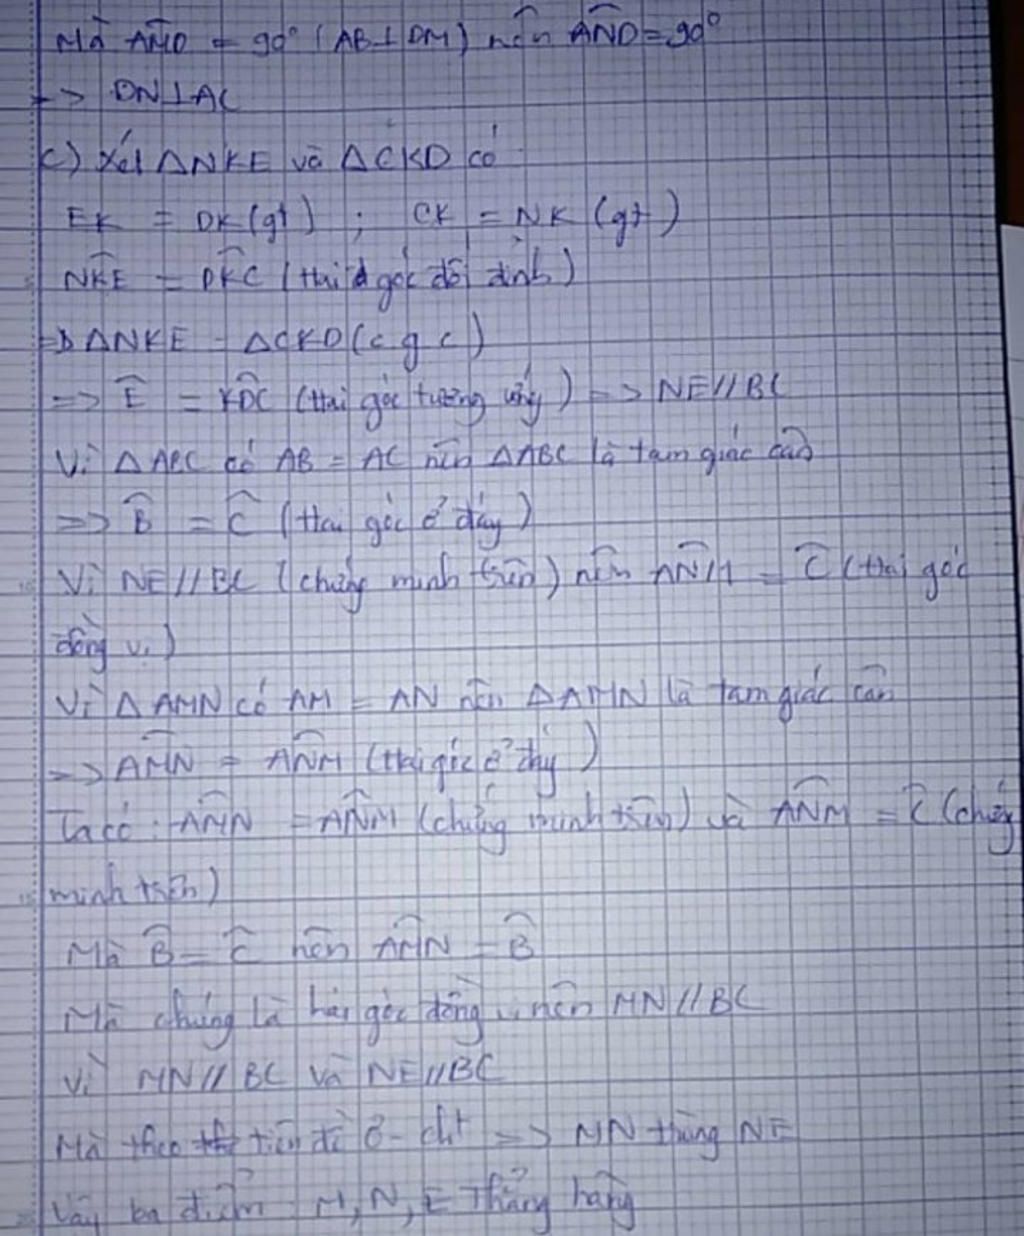 Mà AM̂D = 90° (AB⊥DM) nên AN̂D = 90°
=> DN⊥AC
c) Xét ΔNKE và ΔCKD có
EK = DK (gt) ; CK = NK (gt)
NK̂E = DK̂C (hai góc đối đỉnh)
=> ΔNKE = ΔCKD (c g c)
=> Ê = KD̂C (hai góc tương ứng) => NE//BC
Vì ΔABC có AB = AC nên ΔABC là tam giác cân
=> B̂ = Ĉ (Hai góc ở đáy)
Vì NE//BC (chứng minh trên) nên AN̂M = Ĉ (hai góc
đồng vị)
Vì ΔAMN có AM = AN nên ΔAMN là tam giác cân
=> AM̂N = AN̂M (hai góc ở đáy)
Ta có : AM̂N = AN̂M (chứng minh trên) và AN̂M = Ĉ (chứng
minh trên)
Mà B̂ = Ĉ nên AM̂N = B̂
Mà chúng là hai góc đồng vị nên MN//BC
Vì MN//BC và NE//BC
Mà theo tiên đề Ơ-clit => MN trùng NE
Vậy ba điểm M, N, E thẳng hàng